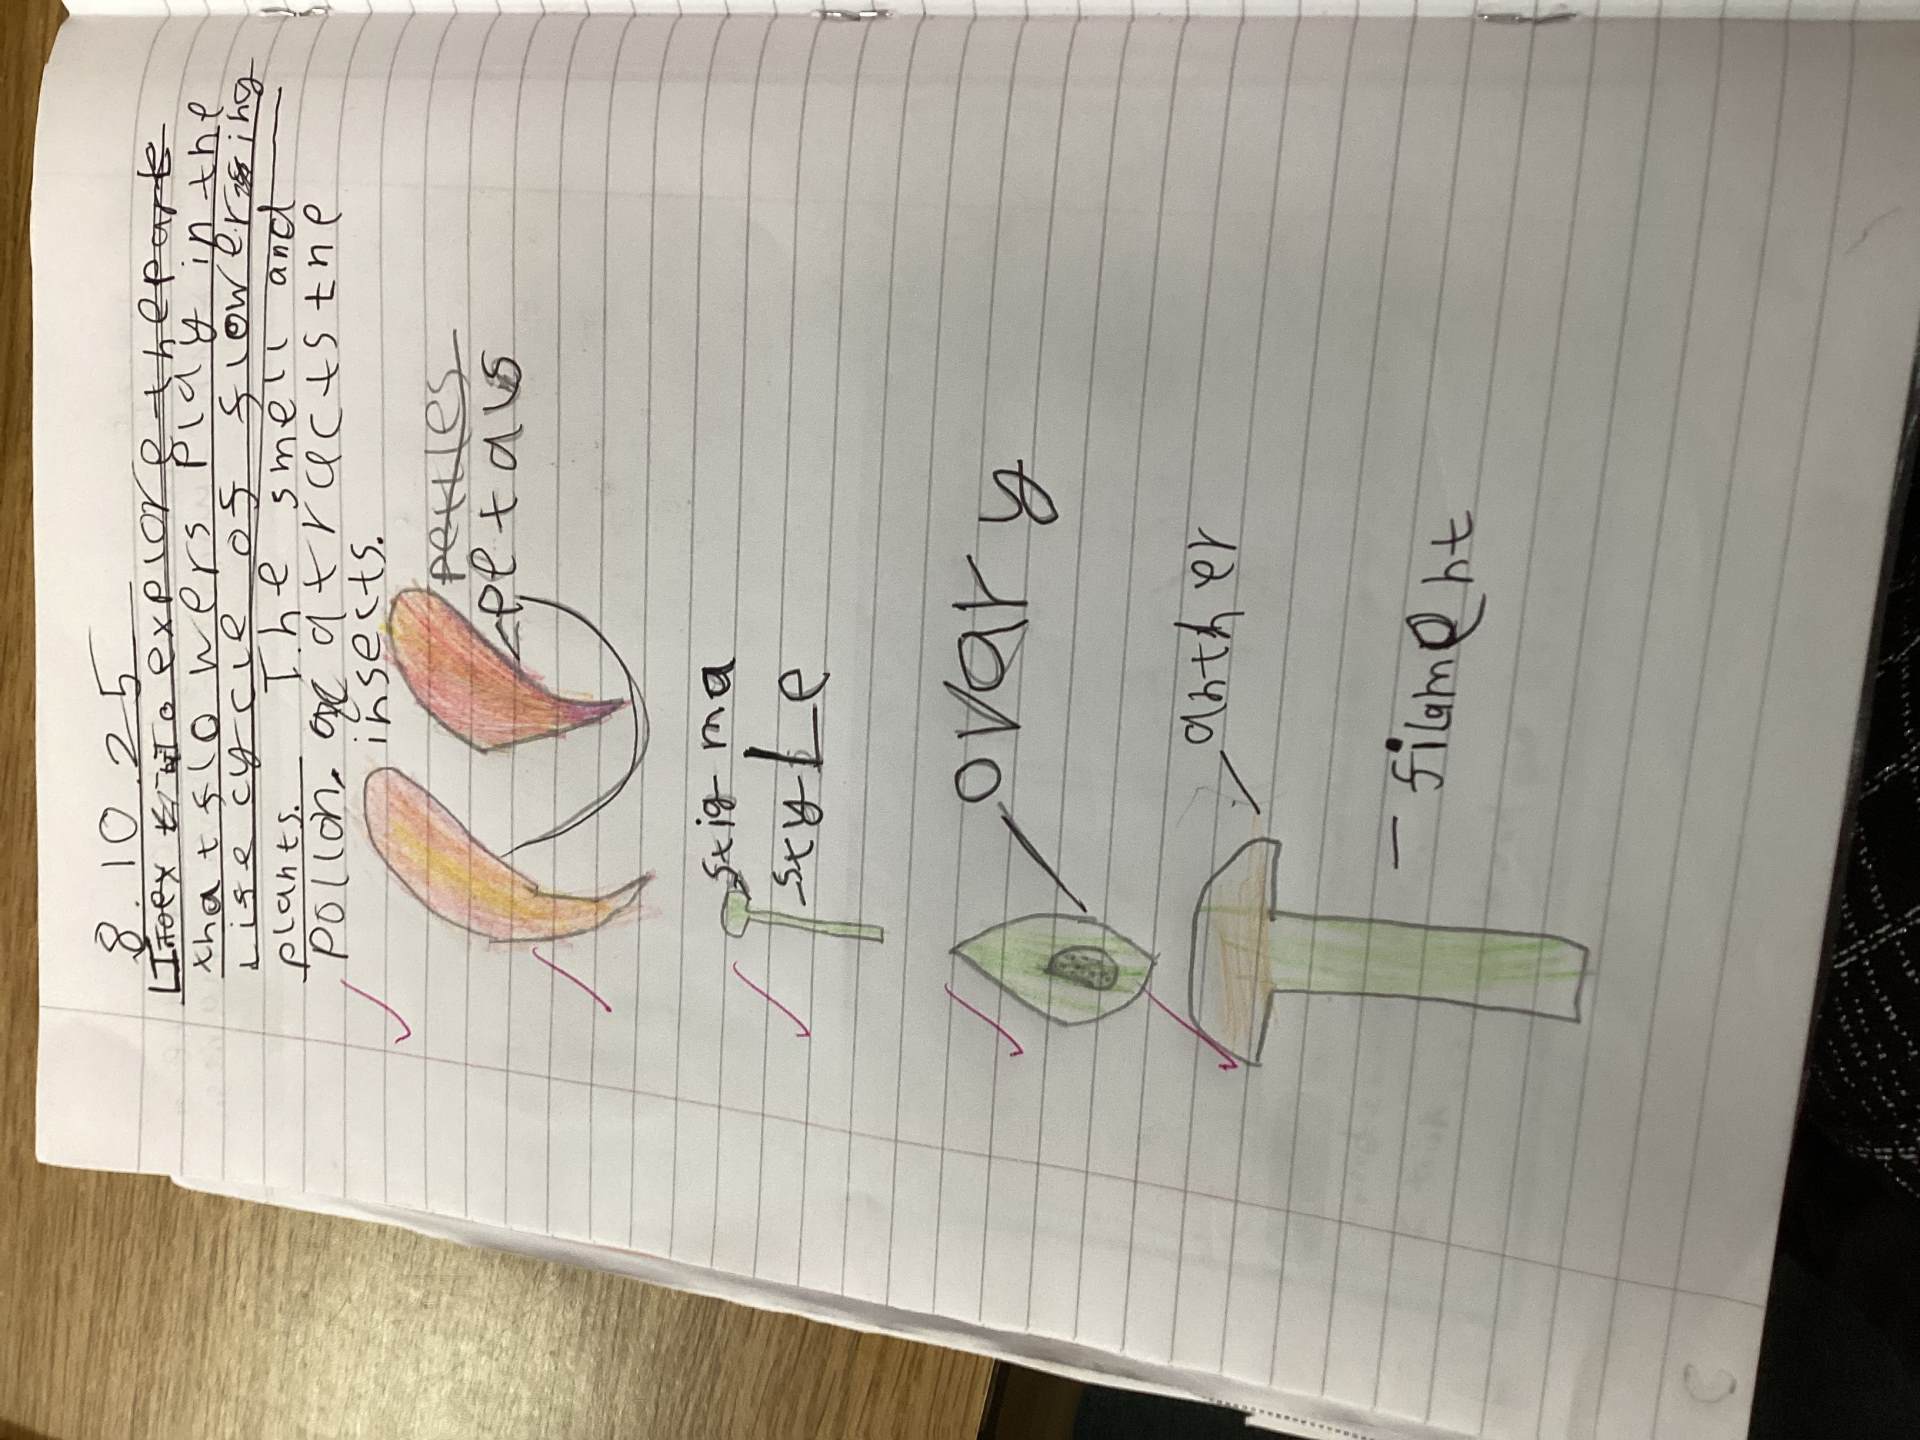 8.10.25
LI: To explore the part
that flowers play in the
life cycle of flowering
plants. The smell and
pollon, atracts the
insects.
petles
petaus
stigma
style
ovary
anther
filament